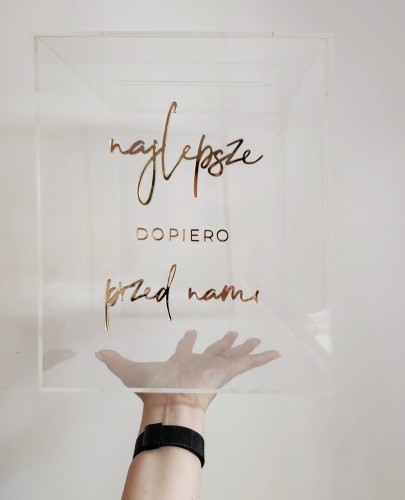 najlepsze
DOPIERO
przed nami